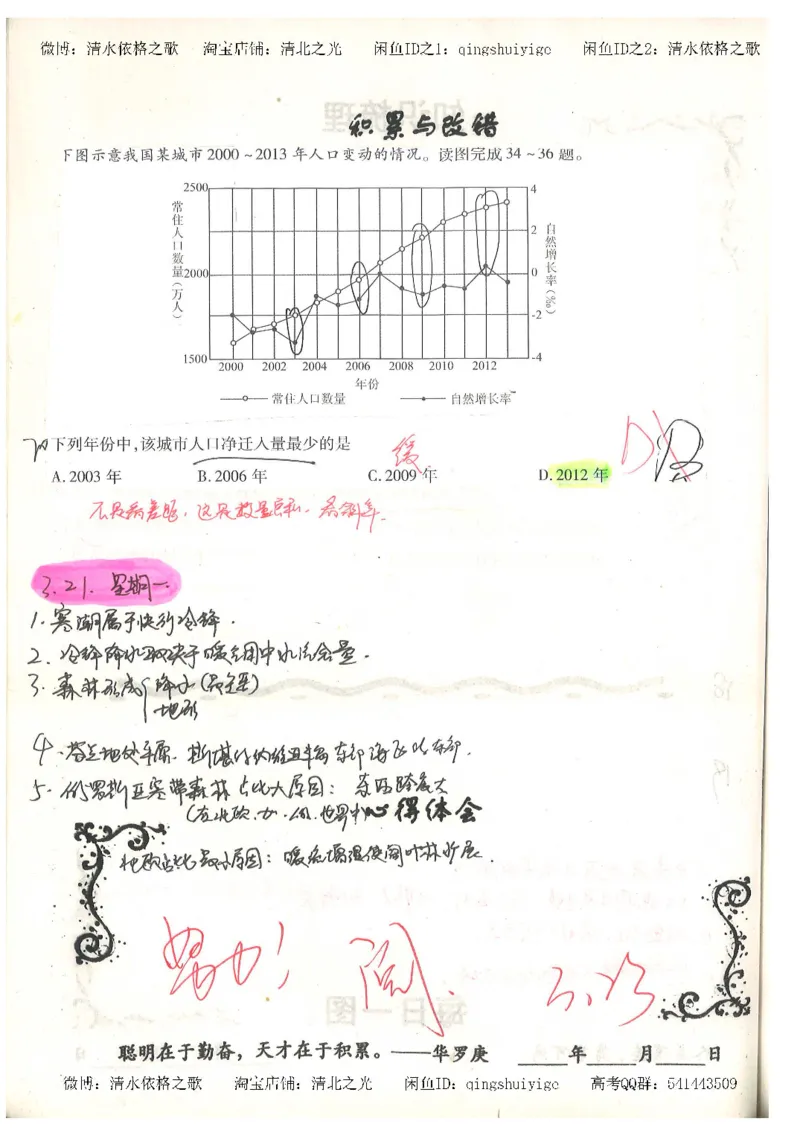 微博：清水依格之歌 淘宝店铺：清北之光 闲鱼ID之1：qingshuiyige 闲鱼ID之2：清水依格之歌
积累与改错
下图示意我国某城市2000～2013年人口变动的情况。读图完成34～36题。
常住人口数量（万人）
2500
2000
1500
4
2
0
-2
-4
自然增长率（‰）
2000 2002 2004 2006 2008 2010 2012
年份
常住人口数量 自然增长率
下列年份中，该城市人口净迁入量最少的是
A. 2003年 B. 2006年 C. 2009年 D. 2012年
3.21. 星期一
1. 寒潮属于快行冷锋.
2. 冷锋降水取决于暖气团中水汽含量.
3. 森林形成 降水（最主要）
地形
5. 俄罗斯亚寒带森林占比大原因：东西跨度大
心得体会
北欧占比最小原因：暖流增温使阔叶林扩展.
努力！ 阅.
聪明在于勤奋，天才在于积累。——华罗庚 年 月 日
微博：清水依格之歌 淘宝店铺：清北之光 闲鱼ID：qingshuiyige 高考QQ群：541443509